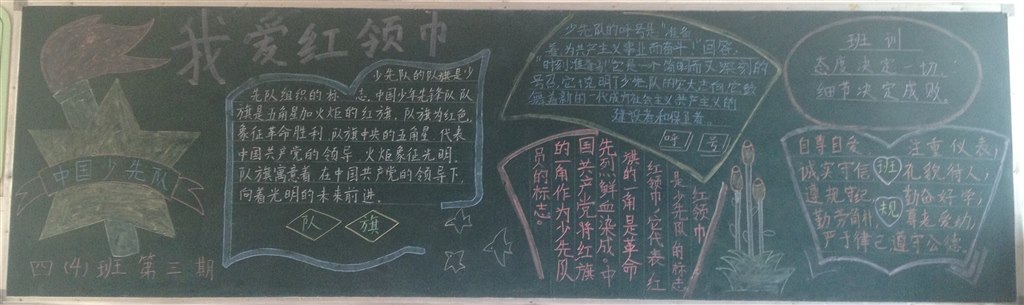 我爱红领巾
中国少先队
四(4)班第三期
少先队的队旗是少
先队组织的标志。中国少年先锋队队
旗是五角星加火炬的红旗。队旗为红色,
象征革命胜利,队旗中央的五角星,代表
中国共产党的领导,火炬象征光明。
队旗寓意着在中国共产党的领导下,
向着光明的未来前进。
队 旗
少先队的呼号是"准备
着,为共产主义事业而奋斗!"回答,
"时刻准备着!"它是一个简明而又深刻的
号召,它说明了少先队的
共产主义的
建设者和保卫者。
呼号
红领巾
是少先队员的标志
红领巾,它代表红
旗的一角是革命
先烈鲜血染成。中
国共产党将红旗
的一角作为少先队
员的标志。
班训
态度决定一切,
细节决定成败。
班规
自尊自爱 注重仪表,
诚实守信 礼貌待人,
遵规守纪 勤奋好学,
勤劳俭朴 尊老爱幼,
严于律己 遵守公德。